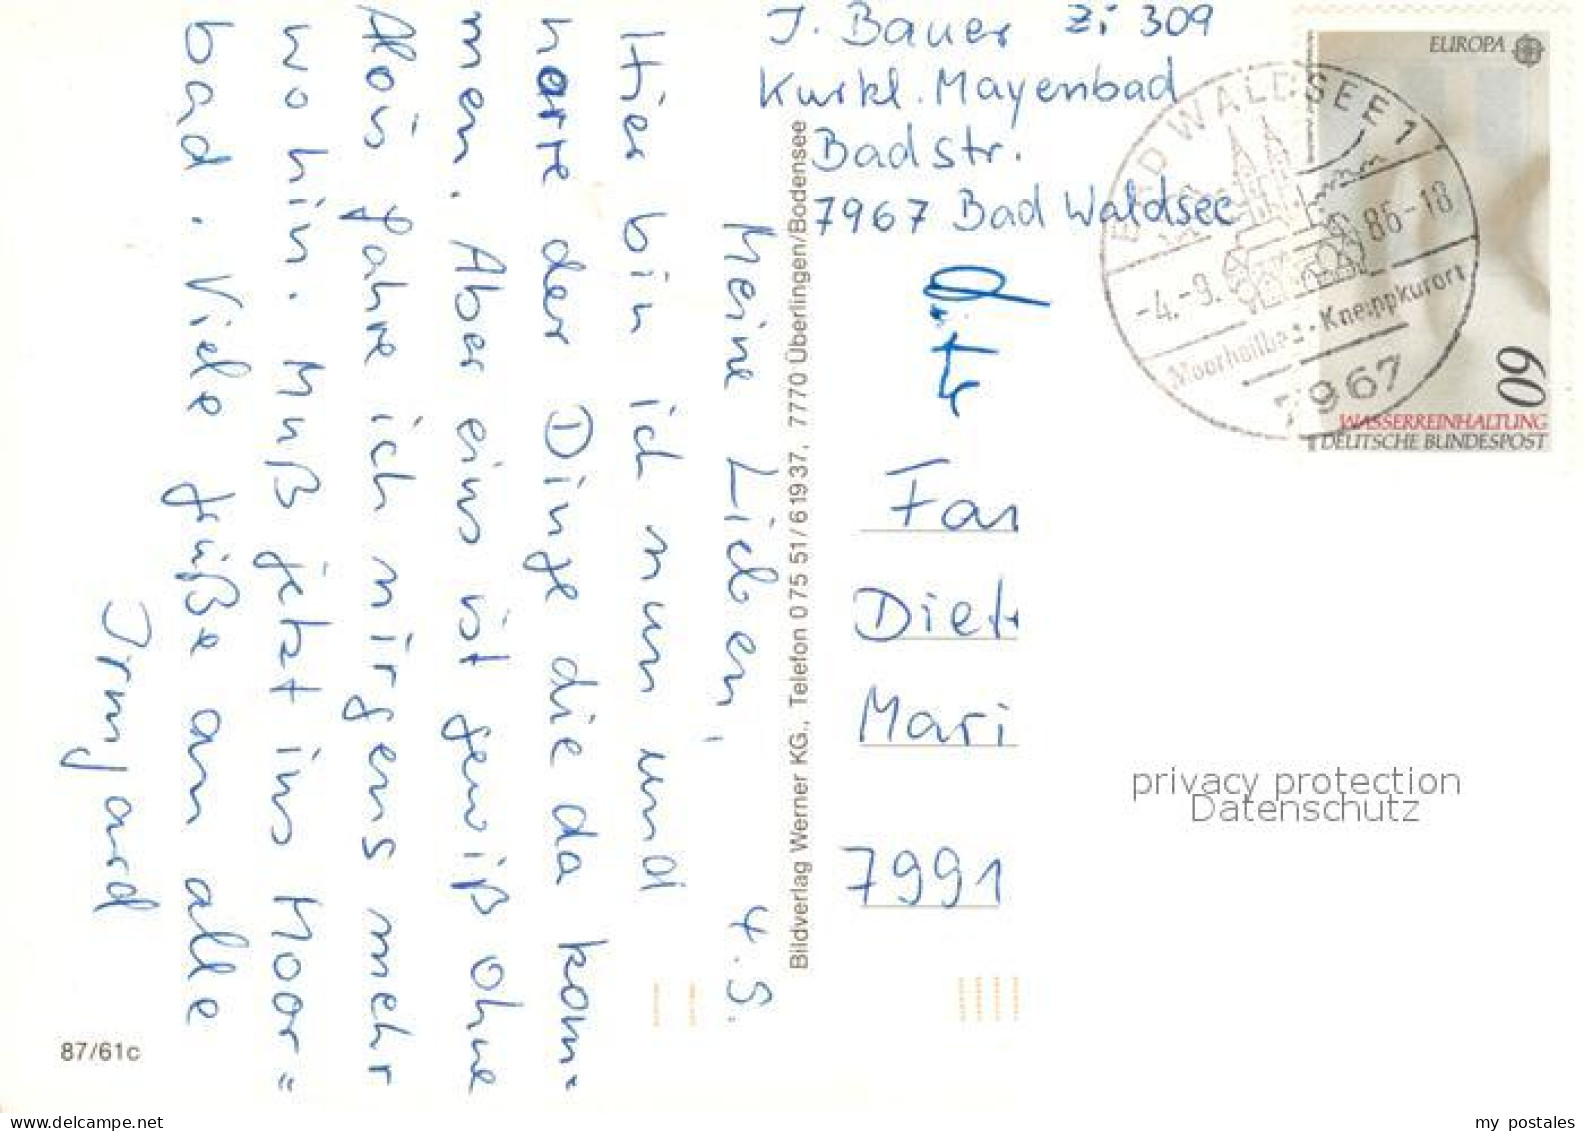 J. Bauer Zi 309
Kurkl. Mayenbad
Badstr.
7967 Bad Waldsee
EUROPA
BAD WALDSEE 1
-4.-9. 86-18
Moorheilbad . Kneippkurort
7967
60
WASSERREINHALTUNG
DEUTSCHE BUNDESPOST
4.9.
Meine Lieben,
Hier bin ich nun und
harre der Dinge die da kom-
men. Aber eins ist gewiß ohne
Alois fahre ich nirgens mehr
wohin. Muß jetzt ins Moor=
bad. Viele grüße an alle
Irmgard
Bildverlag Werner KG., Telefon 0 75 51/6 19 37, 7770 Überlingen/Bodensee
Fam
Diet
Mari
7991
privacy protection
Datenschutz
87/61c
www.delcampe.net
my_postales